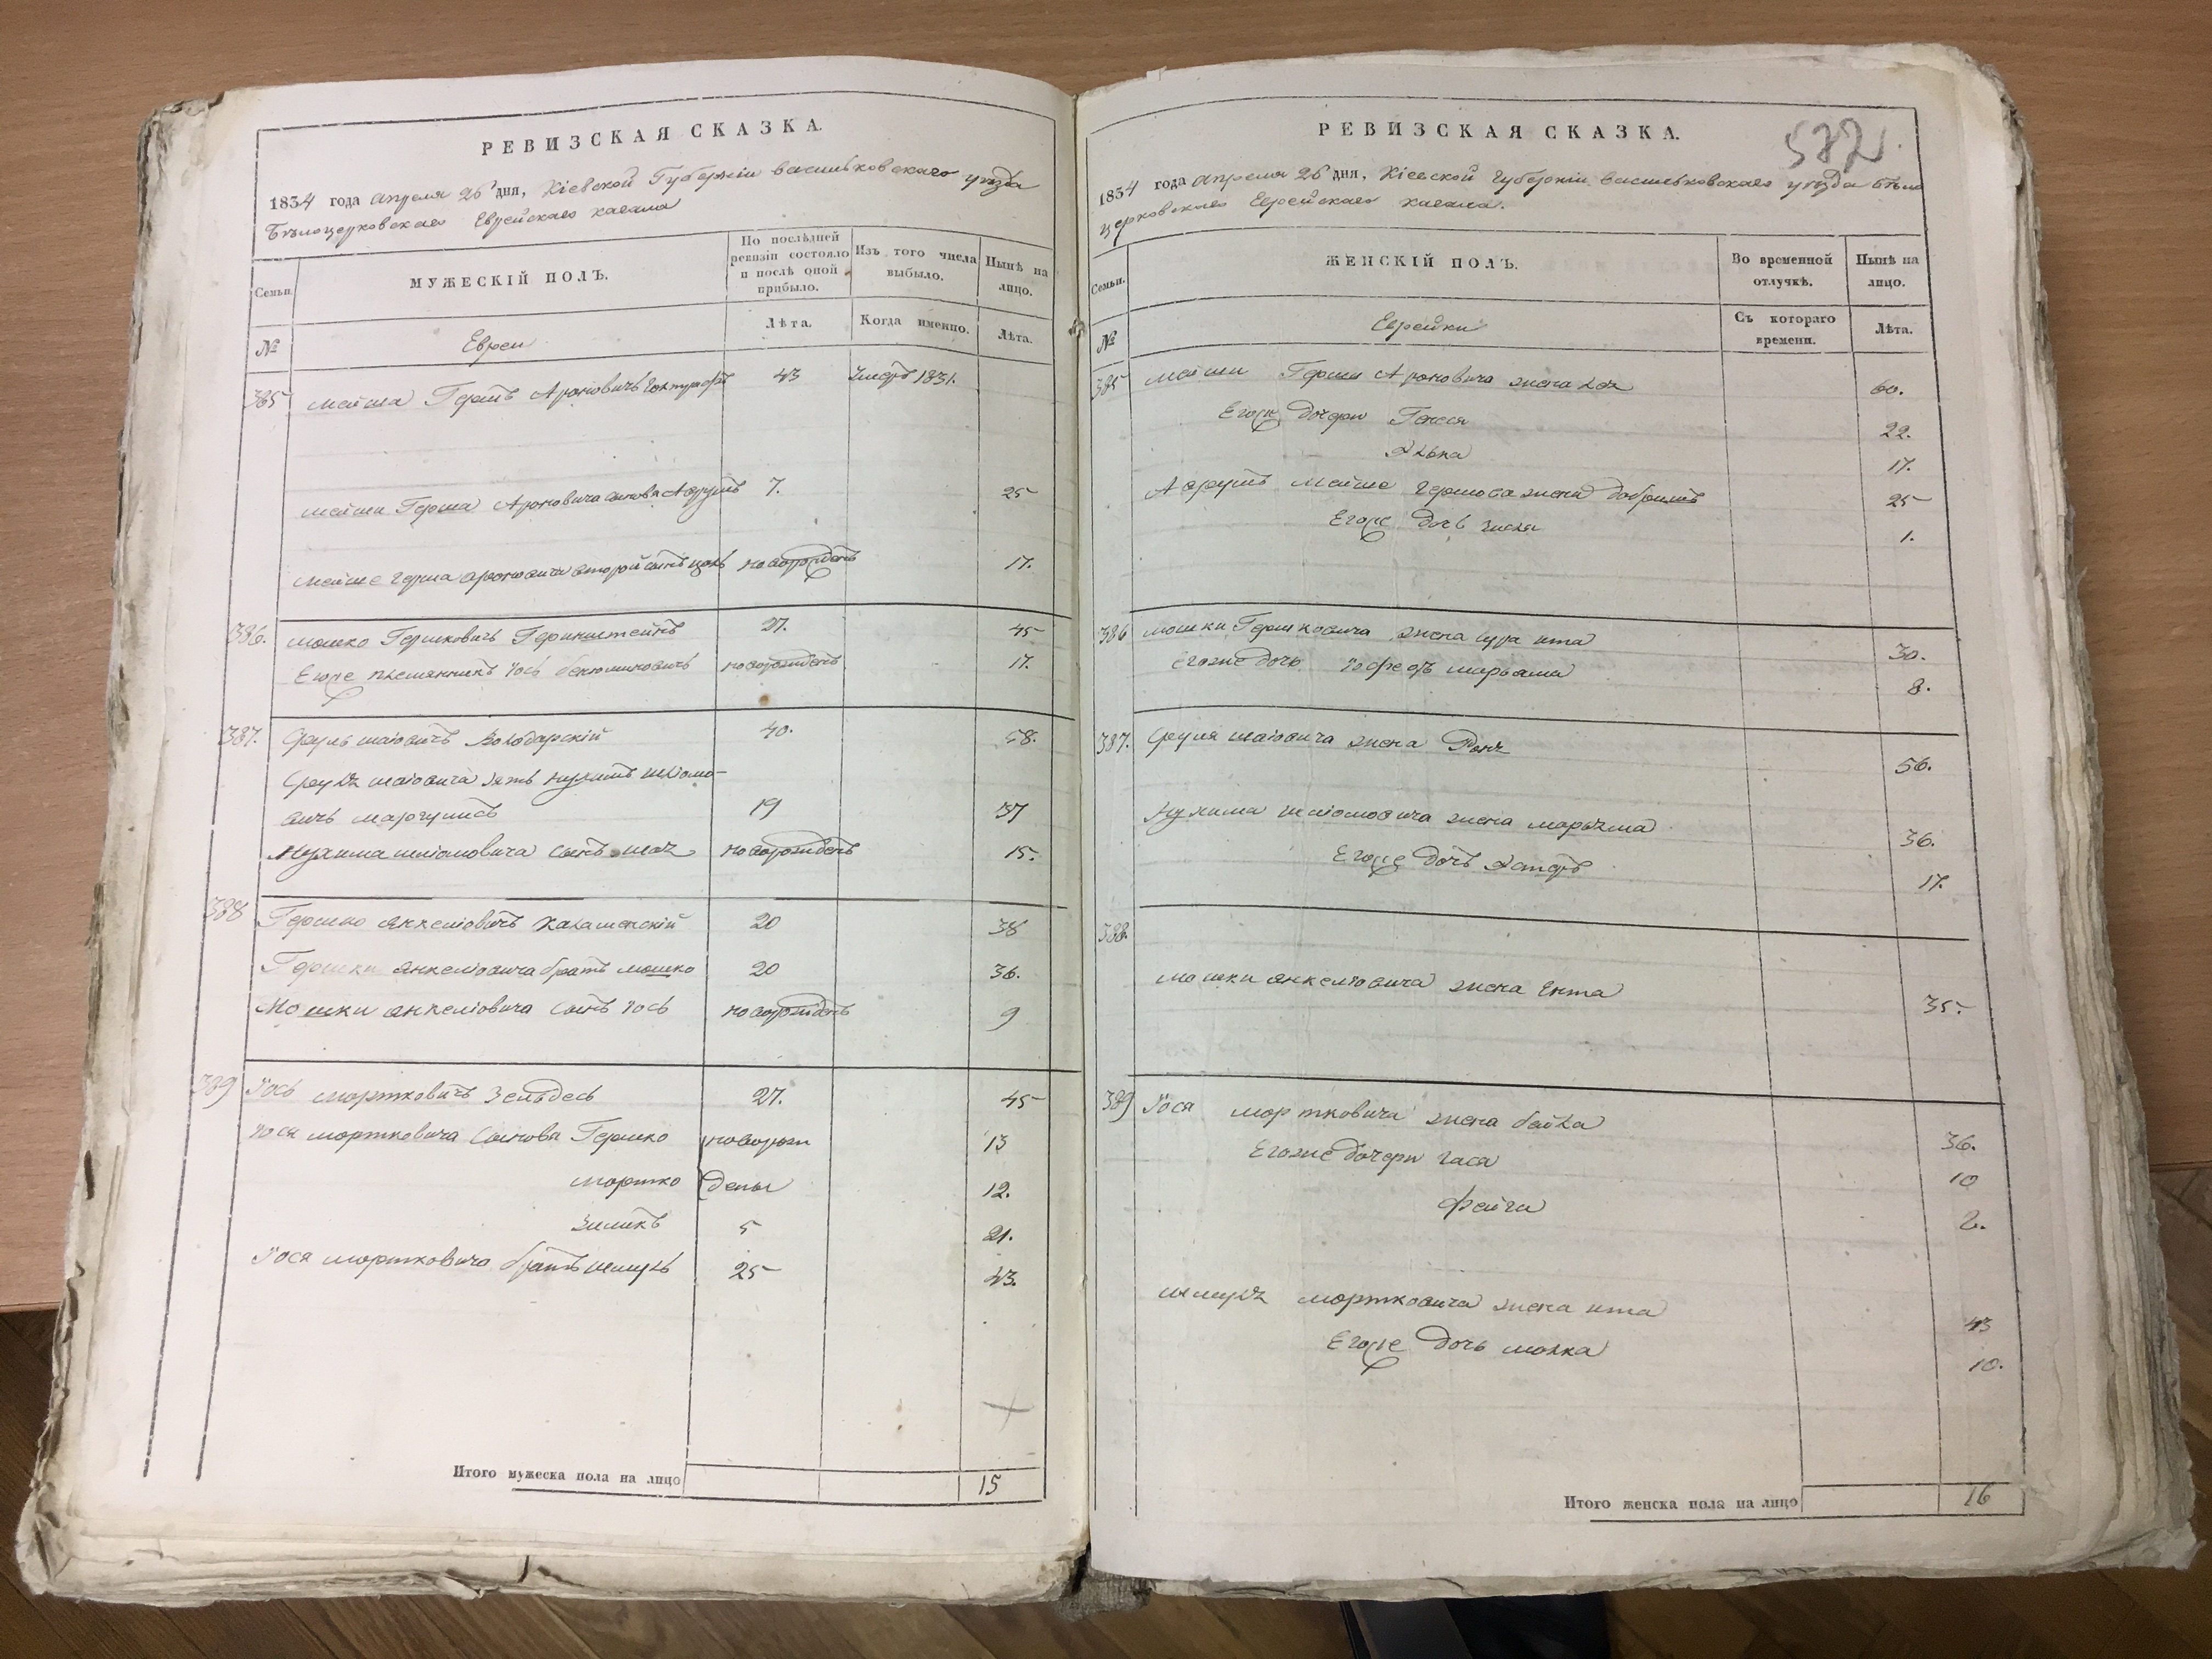 РЕВИЗСКАЯ СКАЗКА.
1834 года Апреля 26 дня, Кіевской Губерніи Васильковского уезда
Бѣлоцерковскаго Еврейскаго кагала
Семьи.
МУЖЕСКІЙ ПОЛЪ.
По послѣдней ревизіи состояло и послѣ оной прибыло.
Изъ того числа выбыло.
Нынѣ на лицо.
№
Евреи
Лѣта.
Когда именно.
Лѣта.
385 Мейша Гершъ Ароновичъ 43 Умеръ 1831.
Мейши Герша Ароновича сынова 7. 25
Мейше Герша Ароновича второй сынъ новорожденъ 17.
386. Мошко Гершковичъ Геринштейнъ 27. 45
Егоже племянникъ Іось Бенюминовичъ новорожденъ 17.
387. Сруль Шаіовичъ Володарскій 40. 58.
Сруля Шаіовича зять Нухимъ Шліомо-
вичъ Маргулисъ 19 37
Нухима Шліомовича сынъ Шая новорожденъ 15.
388 Гершко Янкеліовичъ Калашенскій 20 38
Гершки Янкеліовича братъ Мошко 20 36.
Мошки Янкеліовича сынъ Іось новорожденъ 9
389 Іось Мортковичъ Зельдесъ 27. 45
Іося Мортковича сынова Гершко новорож 13
Мортко дены 12.
Зиликъ 5 21.
Іося Мортковича братъ Шмуль 25 43.
Итого мужеска пола на лицо 15
РЕВИЗСКАЯ СКАЗКА.
582
1834 года Апреля 26 дня, Кіевской Губерніи Васильковскаго уезда Бѣло
церковскаго Еврейскаго кагала.
Семьи.
ЖЕНСКІЙ ПОЛЪ.
Во временной отлучкѣ.
Нынѣ на лицо.
№
Еврейки
Съ котораго времени.
Лѣта.
385 Мейши Герша Ароновича жена Лея 60.
Егоже дочери Генеся 22.
Элька 17.
Мейше Гершова жена Добришъ 25
Егоже дочь 1.
386 Мошки Гершковича жена Сура Ита 30.
Егоже дочь Марьяма 8.
387. Сруля Шаіовича жена 56.
Нухима Шліомовича жена Марьяма 36.
Егоже дочь Эстеръ 17.
388.
Мошки Янкеліовича жена Ента 35.
389 Іося Мортковича жена Бейла 36.
Егоже дочери Хася 10
Фейга 2.
Шмуля Мортковича жена Ита 43
Егоже дочь Малка 10.
Итого женска пола на лицо 16